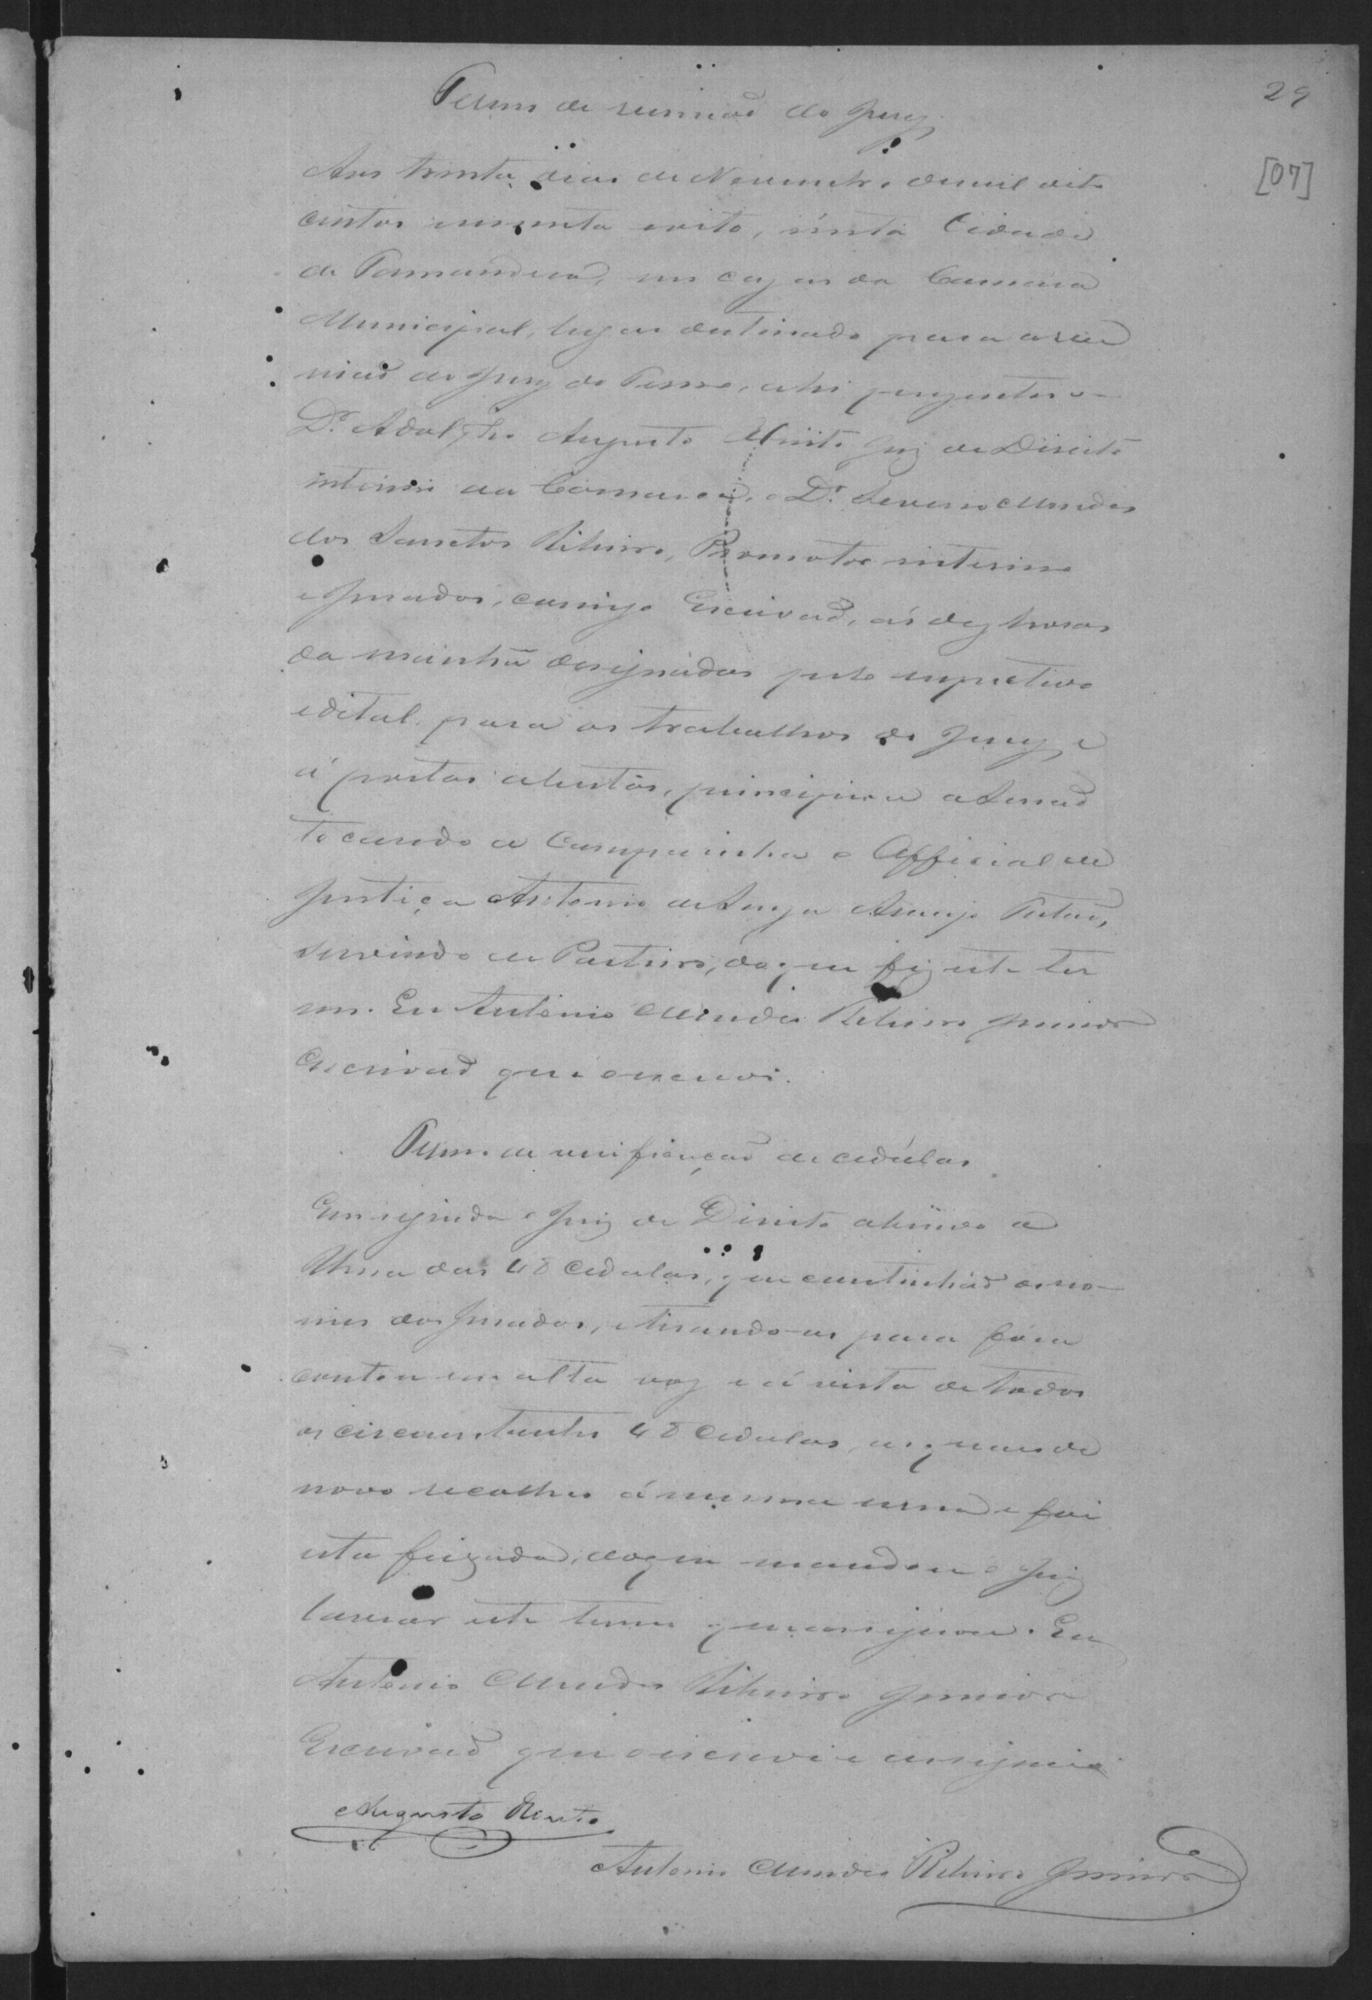 29
[07]
Termo de reunião do Jury
Aos trinta dias de Novembro de mil oito
centos e oito, nesta Cidade
de Tamanduá, em cazas da Camara
Municipal, lugar destinado para a reu
nião do Jury do Termo, ahi prezentes o
Dr. Adolpho Augusto Juiz de Direito
interino da Comarca, o Dr. Severo Mendes
dos Santos Ribeiro, Promotor interino
e Jurados, comigo Escrivão, ás dez horas
da manhã designadas pelo respectivo
edital para os trabalhos do Jury, e
á portas abertas, principiou a Sessão
tocando a Campainha o Official de
Justiça Antonio de Souza Araujo
servindo de Porteiro, do que fiz este ter
mo. Eu Antonio Mendes Ribeiro Junior
Escrivão que o escrevi.
Termo de verificação de cedulas
Em seguida o Juiz de Direito abrindo a
Urna das 48 cedulas, que continhão os no-
mes dos Jurados, e tirando-as para fóra
contou em alta voz e á vista de todos
os circunstantes 48 cedulas, as quaes de
novo recolheu á mesma urna e foi
esta feixada, do que mandou o Juiz
lavrar este termo que assignou. Eu
Antonio Mendes Ribeiro Junior
Escrivão que o escrevi e assignei
Augusto
Antonio Mendes Ribeiro Junior